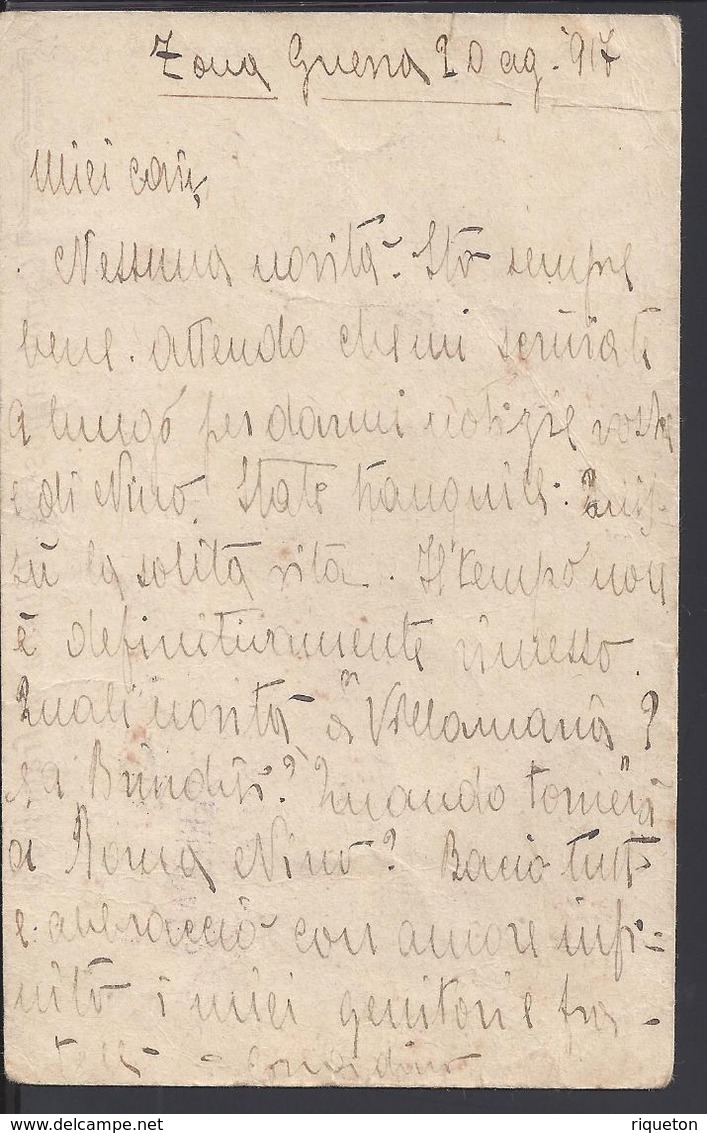 Zona Guerra 20 ag. '917
Miei cari,
Nessuna novità. Sto sempre
bene. Attendo che mi scriviate
a lungo per darmi notizie vostre
e di Nino. State tranquilli. Quas-
sù la solita vita. Il tempo non
è definitivamente rimesso.
Quali novità a Villamaria?
e a Brindisi? Quando tornerà
a Roma Nino? Bacio tutti
e abbraccio con amore infi=
nito i miei genitori e fra-
telli =
riqueton